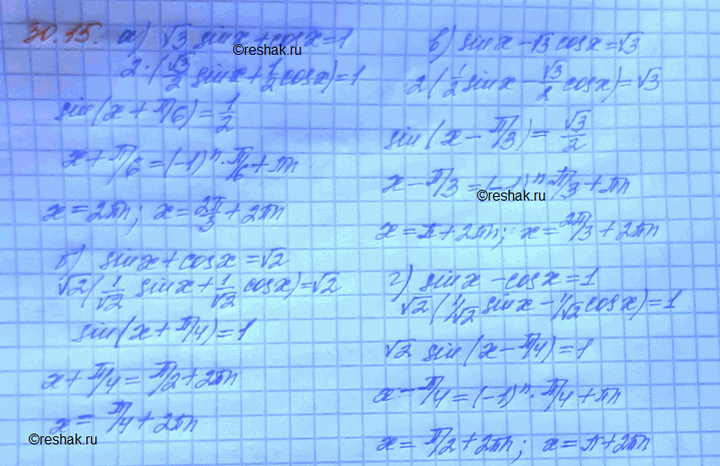 30.15. а) √3 sinx + cosx = 1
©reshak.ru
2·(√3/2 sinx + 1/2 cosx) = 1
sin(x + π/6) = 1/2
x + π/6 = (-1)ⁿ·π/6 + πn
x = 2πn; x = 2π/3 + 2πn
б) sinx + cosx = √2
√2(1/√2 sinx + 1/√2 cosx) = √2
sin(x + π/4) = 1
x + π/4 = π/2 + 2πn
x = π/4 + 2πn
©reshak.ru
в) sinx - √3 cosx = √3
2(1/2 sinx - √3/2 cosx) = √3
sin(x - π/3) = √3/2
x - π/3 = (-1)ⁿ·π/3 + πn
©reshak.ru
x = π + 2πn; x = 2π/3 + 2πn
г) sinx - cosx = 1
√2(1/√2 sinx - 1/√2 cosx) = 1
√2 sin(x - π/4) = 1
x - π/4 = (-1)ⁿ·π/4 + πn
x = π/2 + 2πn; x = π + 2πn
©reshak.ru